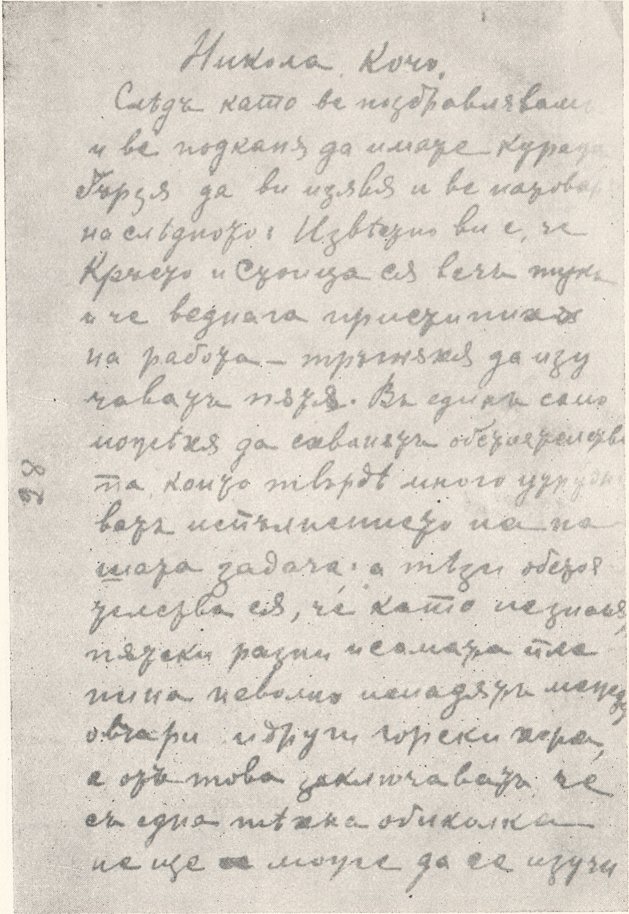 Никола, Кочо,
Слѣдъ като ве поздравлявамъ
и ве подканя да имате куража
бързя да ви изявя и ве
на слѣдното: Извѣстно ви е, че
Кръсто и Стоица ся вечъ тука
и че веднага пристъпихя
на работа – тръгняхя да изу
чаватъ пятя. Въ единъ само
да схванятъ обстоятелства
та, които твърдѣ много затрудня
ватъ испълнението на на
шата задача: а тѣзи обстоя
телства ся, че като незнаяя,
пятеки разни и самата пла
нина неволно попадятъ между
овчари и други горски хора,
а отъ това заключаватъ, че
съ една тѣхна обиколка
не ще може да се изучи
28